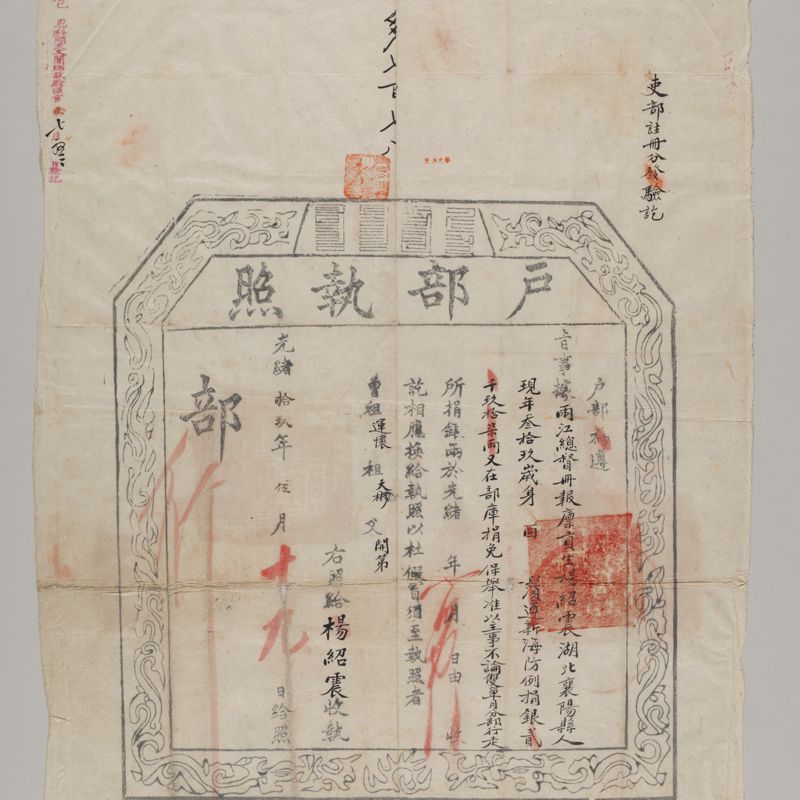 吏部註冊分發驗訖
戶部執照
戶部為遵
旨事據兩江總督冊報廩貢生楊紹震湖北襄陽縣人
現年叁拾玖歲身 面 鬚遵新海防例捐銀貳
千玖拾柒兩又在部庫捐免保舉准以主事不論雙單月分部行走
所捐銀兩於光緒 年 月 日由 收
訖相應換給執照以杜假冒須至執照者
曾祖運懷 祖天榜 父開第
右照給楊紹震收執
光緒拾玖年伍月十九日給照
部
七月